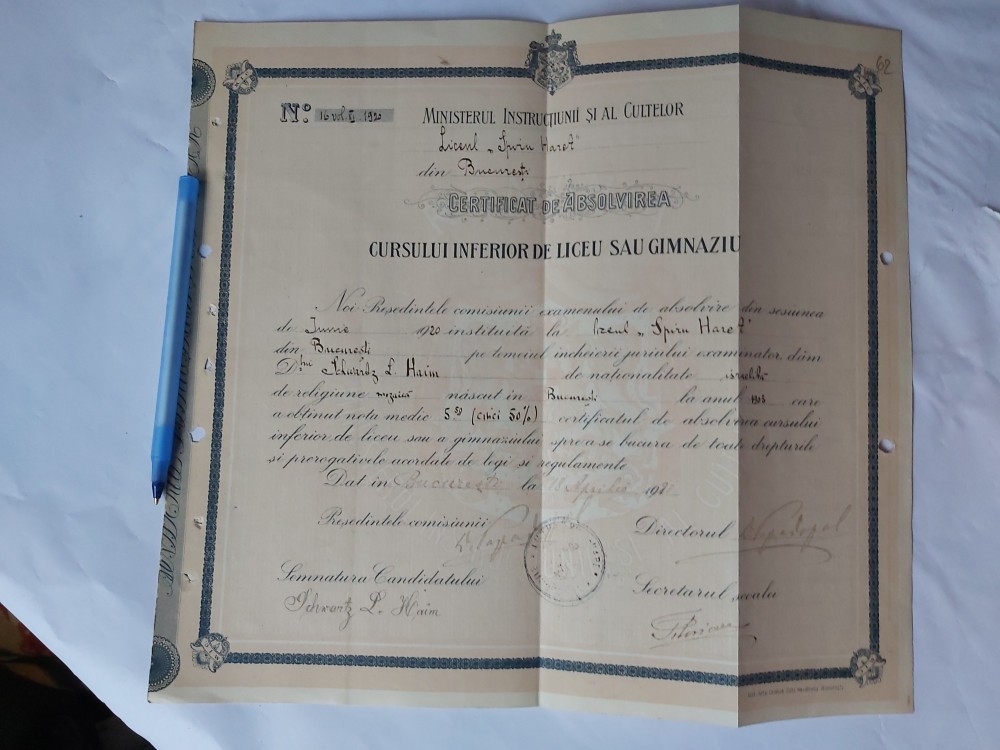 62
No. 16 vol. II 1920
MINISTERUL INSTRUCȚIUNII ȘI AL CULTELOR
Liceul „Spiru Haret"
din București
CERTIFICAT DE ABSOLVIREA
CURSULUI INFERIOR DE LICEU SAU GIMNAZIU
Noi Președintele comisiunii examenului de absolvire din sesiunea
de Iunie 1920 instituită la Liceul „Spiru Haret"
din București pe temeiul incheierii juriului examinator, dăm
Dlui Schwartz L. Haim de naționalitate israelită
de religiune mozaică născut in București la anul 1903 care
a obținut nota medie 5 50 (cinci 50%) certificatul de absolvirea cursului
inferior de liceu sau a gimnaziului spre a se bucura de toate drepturile
și prerogativele acordate de legi si regulamente
Dat in București la 18 Aprilie 192
Președintele comisiunii
Directorul
Semnatura Candidatului
Secretarul școalei
Schwartz L. Haim